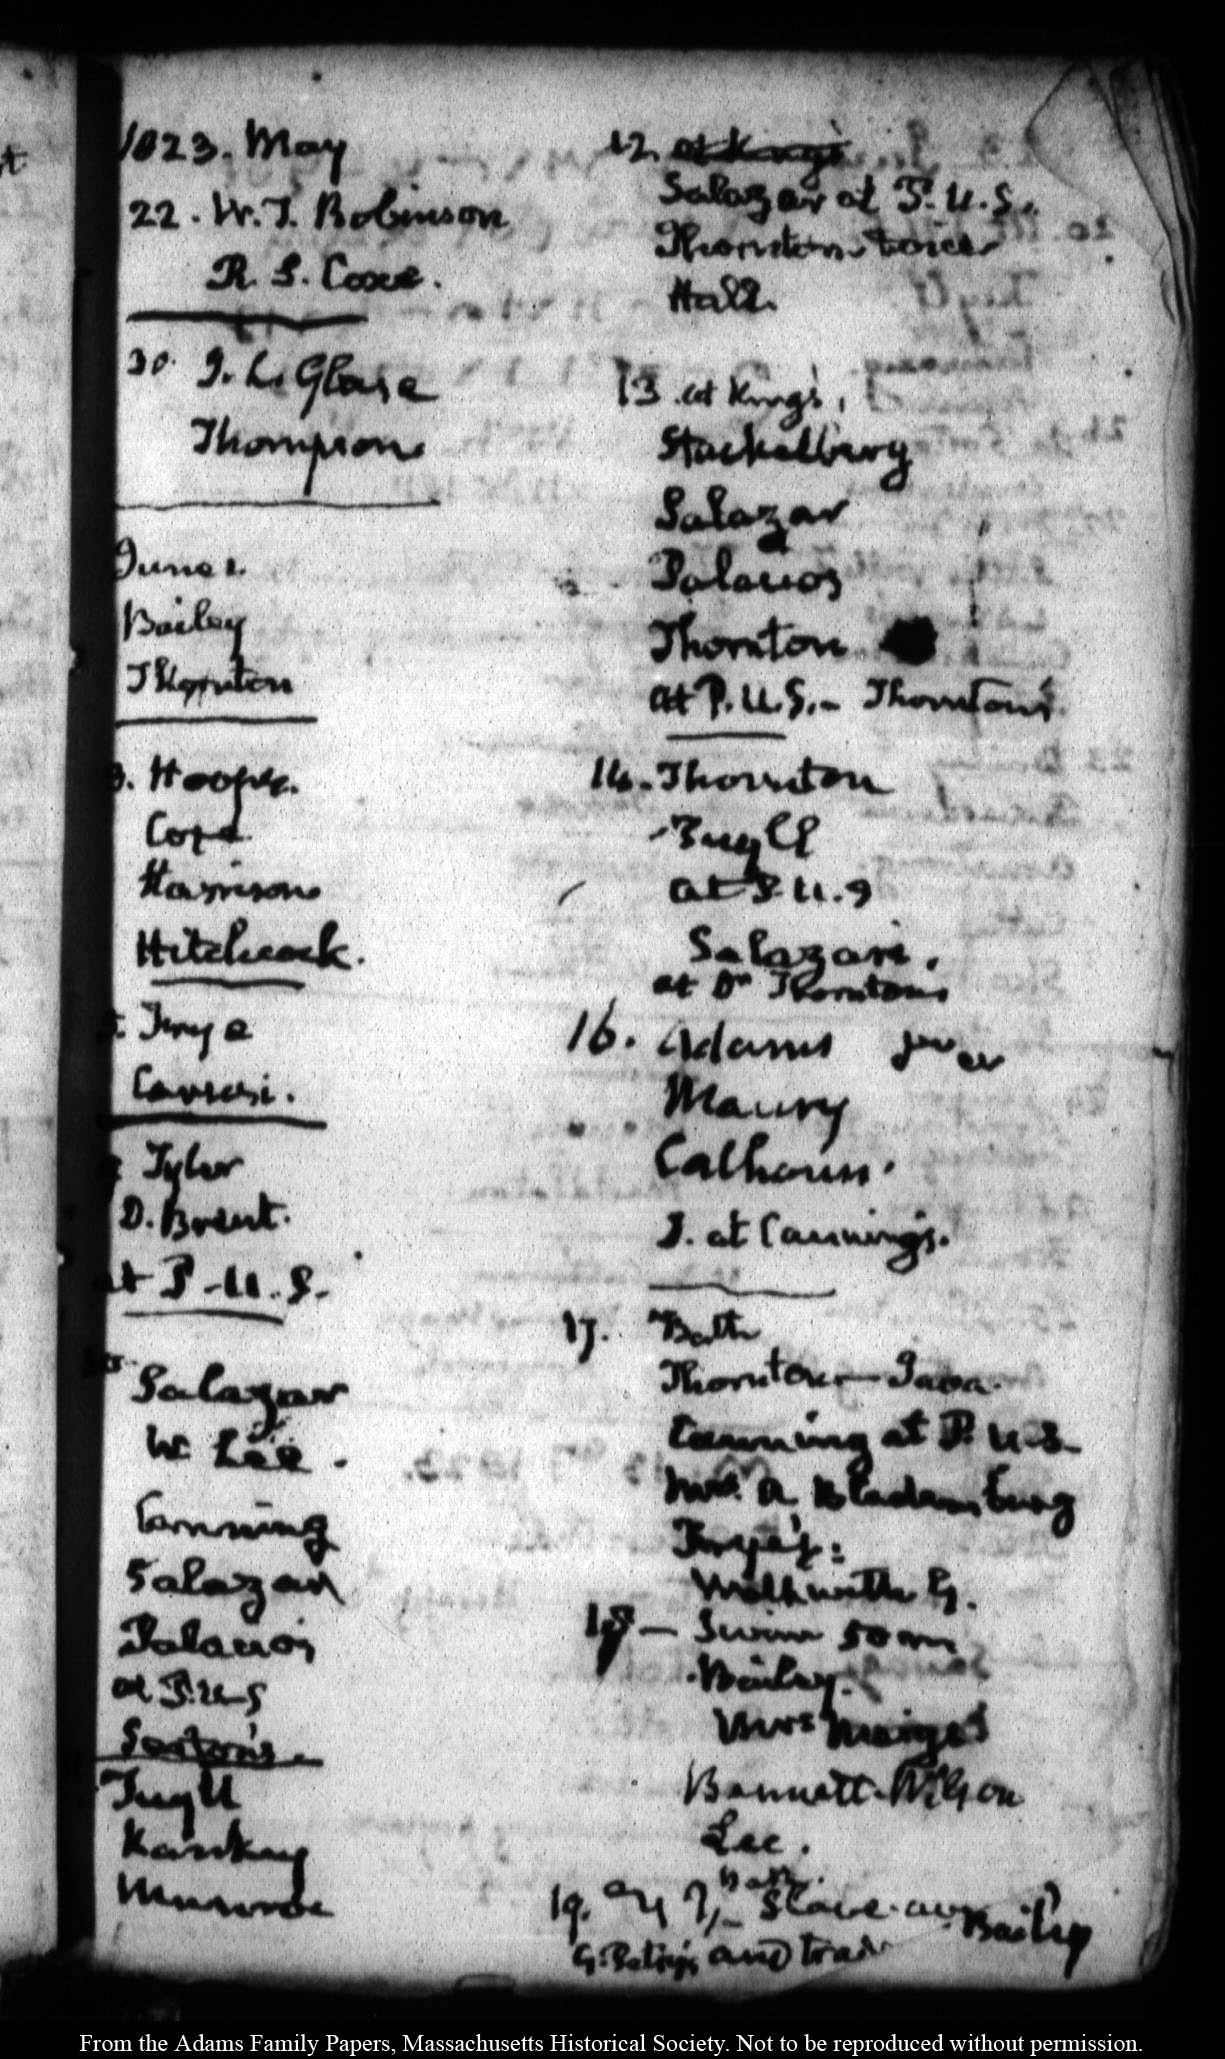 1823. May
22. W. T. Robinson
R. S. Coxe.
30. J. L. Glase
Thompson
June 2.
Bailey
Thornton
3. Hooper.
Cope
Harrison
Hitchcock.
5. Frye
Carusi.
Tyler
D. Brent.
at P-U.S.
Salazar
W. Lee.
Canning
Salazar
Palacios
at P.U-S
Seaton's.
Tuyll
Kankey
Munroe
12. at King's
Salazar at P.U.S.
Thornton twice
Hall.
13. at King's,
Stackelberg
Salazar
Palacios
Thornton
at P.U.S.- Thornton's
14. Thornton
Tuyll
at P.U.S
Salazar.
at Dr Thorntons
16. Adams
Maury
Calhoun.
J. at Canning's.
17. Bath
Thornton- Java.
Canning at P.U.S-
Mrs. A. Bladensburg
Frye's:
Walk with G.
18- Swim 50 m
Bailey.
Mrs Meigs
Bennett-Wilson
Lee.
Bath.
19. Slave Bailey
and